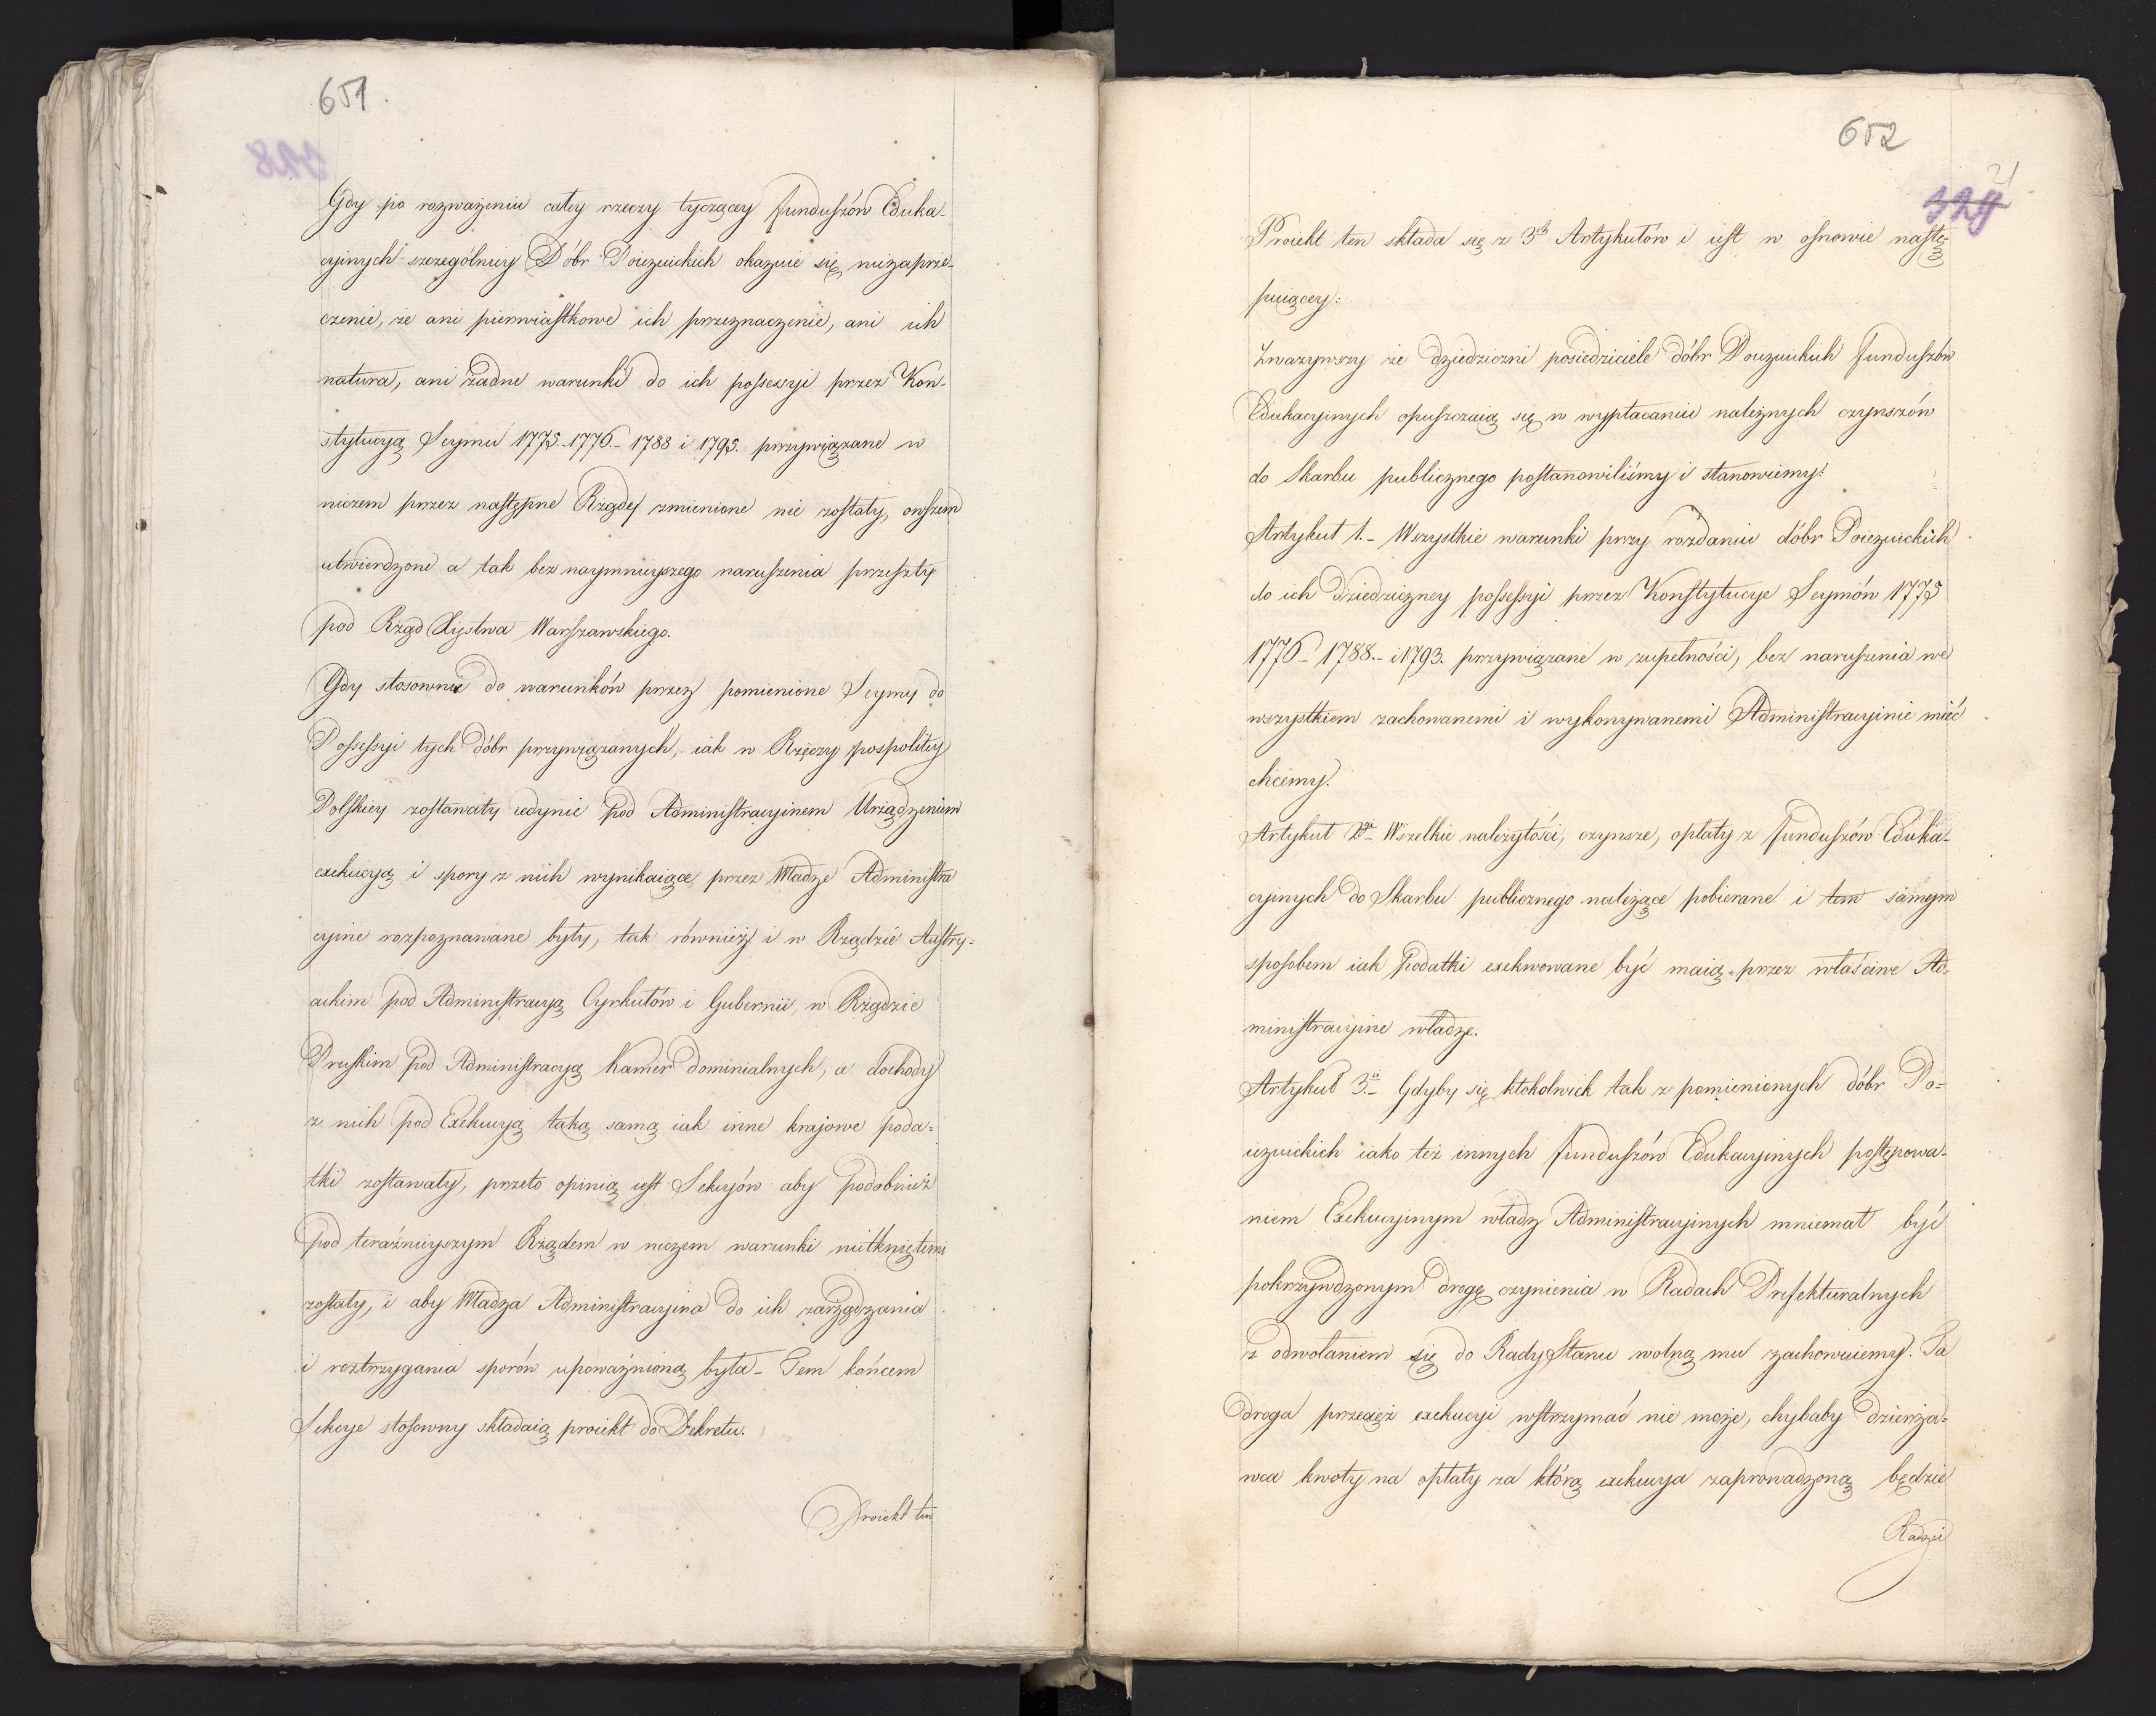 651.
Gdy po rozważeniu całey rzeczy tyczącey funduszów Eduka-
cyinych szczególniey Dóbr Poiezuickich okazuie się niezaprze-
czenie, że ani pierwiastkowe ich przeznaczenie, ani ich
natura, ani żadne warunki do ich possessyi przez Kon-
stytucyą Seymu 1775.-1776.- 1788 i 1793. przywiązane w
niczem przez następne Rządy zmienione nie zostały, owszem
utwierdzone a tak bez naymnieyszego naruszenia przeszły
pod Rząd Xięstwa Warszawskiego.
Gdy stosownie do warunków przez pomienione Seymy do
Possessyi tych dóbr przywiązanych, iak w Rzeczy pospolitey
Polskiey zostawały iedynie pod Administracyinem Urządzeniem
exekucyą i spory z nich wynikaiące przez Władze Administra
cyine rozpoznawane były, tak również i w Rządzie Austry-
ackim pod Administracyą Cyrkułów i Gubernii, w Rządzie
Pruskim pod Administracyą Kamer dominialnych, a dochody
z nich pod Exekucyą taką samą iak inne krajowe poda-
tki zostawały, przeto opinią iest Sekcyów aby podobnież
pod teraźnieyszym Rządem w niczem warunki nietkniętemi
zostały, i aby Władza Administracyina do ich zarządzania
i roztrzygania sporów upoważnioną była- Tem końcem
Sekcye stosowny składaią proiekt do Dekretu.
Proiekt ten
652
324
Proiekt ten składa się z 3ch Artykułów i iest w osnowie nastę
puiącey:
Zważywszy że dziedziczni posiedziciele dóbr Poiezuickich funduszów
Edukacyinych opuszczaią się w wypłacaniu należnych czynszów
do Skarbu publicznego postanowiliśmy i stanowiemy:
Artykuł 1.- Wszystkie warunki przy rozdaniu dóbr Poiezuickich
do ich dziedziczney possessyi przez Konstytucye Seymów 1775
1776- 1788.- i 1793. przywiązane w zupełności, bez naruszenia we
wszystkiem zachowanemi i wykonywanemi Administracyinie mieć
chcemy.
Artykuł 2gi- Wszelkie należytości, czynsze, opłaty z funduszów Eduka-
cyinych do Skarbu publicznego należące pobierane i tem samym
sposobem iak podatki exekwowane być maią przez właściwe Ad-
ministracyine władze.
Artykuł 3.ci- Gdyby się ktokolwiek tak z pomienionych dóbr Po-
iezuickich iako też innych funduszów Edukacyinych postępowa-
niem Exekucyinym władz Administracyinych mniemał być
pokrzywdzonym drogę czynienia w Radach Prefekturalnych
z odwołaniem się do Rady Stanu wolną mu zachowuiemy. Ta
droga przecież exekucyi wstrzymać nie może, chybaby dzierża-
wca kwoty na opłaty za którą exekucya zaprowadzoną będzie
Radzie